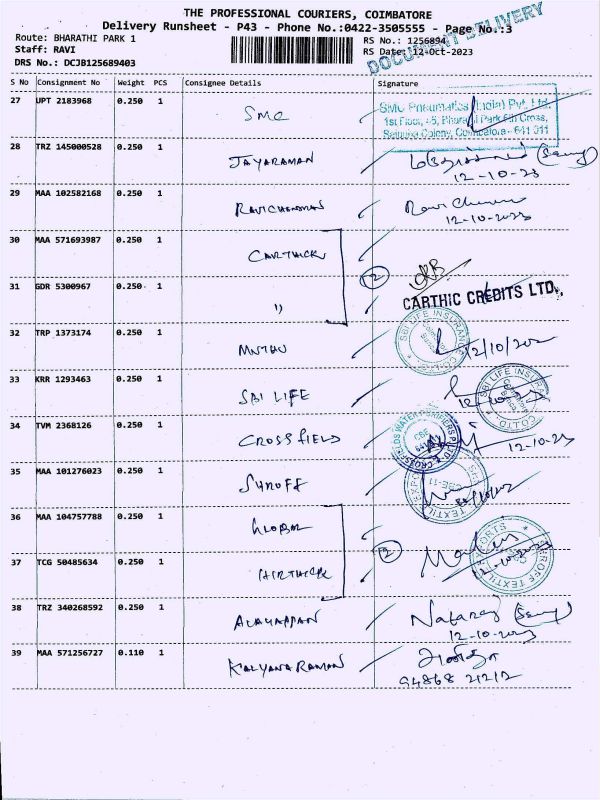 THE PROFESSIONAL COURIERS, COIMBATORE
Delivery Runsheet - P43 - Phone No.:0422-3505555 - Page No.:3
DOCUMENT DELIVERY
Route: BHARATHI PARK 1
RS No.: 1256894
Staff: RAVI
RS Date: 12-Oct-2023
DRS No.: DCJB125689403
S No Consignment No Weight PCS Consignee Details Signature
27 UPT 2183968 0.250 1 SMC
SMC Pneumatics (India) Pvt. Ltd.
1st Floor, Bharathi Park 6th Cross,
Colony, Coimbatore - 641 011
28 TRZ 145000528 0.250 1 JAYARAMAN
12-10-23
29 MAA 102582168 0.250 1 RAVICHANDRAN
12-10-2023
30 MAA 571693987 0.250 1 CARTHICK
2
31 GDR 5300967 0.250 1 "
CARTHIC CREDITS LTD.,
32 TRP 1373174 0.250 1 MUTHU
SBI LIFE INSURANCE
12/10/202
33 KRR 1293463 0.250 1 SBI LIFE
SBI LIFE INSURANCE
34 TVM 2368126 0.250 1 CROSSFIELD
CROSSFIELDS WATER PURIFIERS PVT LTD
CBE
12-10-23
35 MAA 101276023 0.250 1 SHROFF
36 MAA 104757788 0.250 1 GLOBAL
2
37 TCG 50485634 0.250 1 HIRTHICK
SHROFF TEXTILE EXPORTS
38 TRZ 340268592 0.250 1 ALAYAPPAN Nataraj
12-10-2023
39 MAA 571256727 0.110 1 KALYANARAMAN
94868 21212